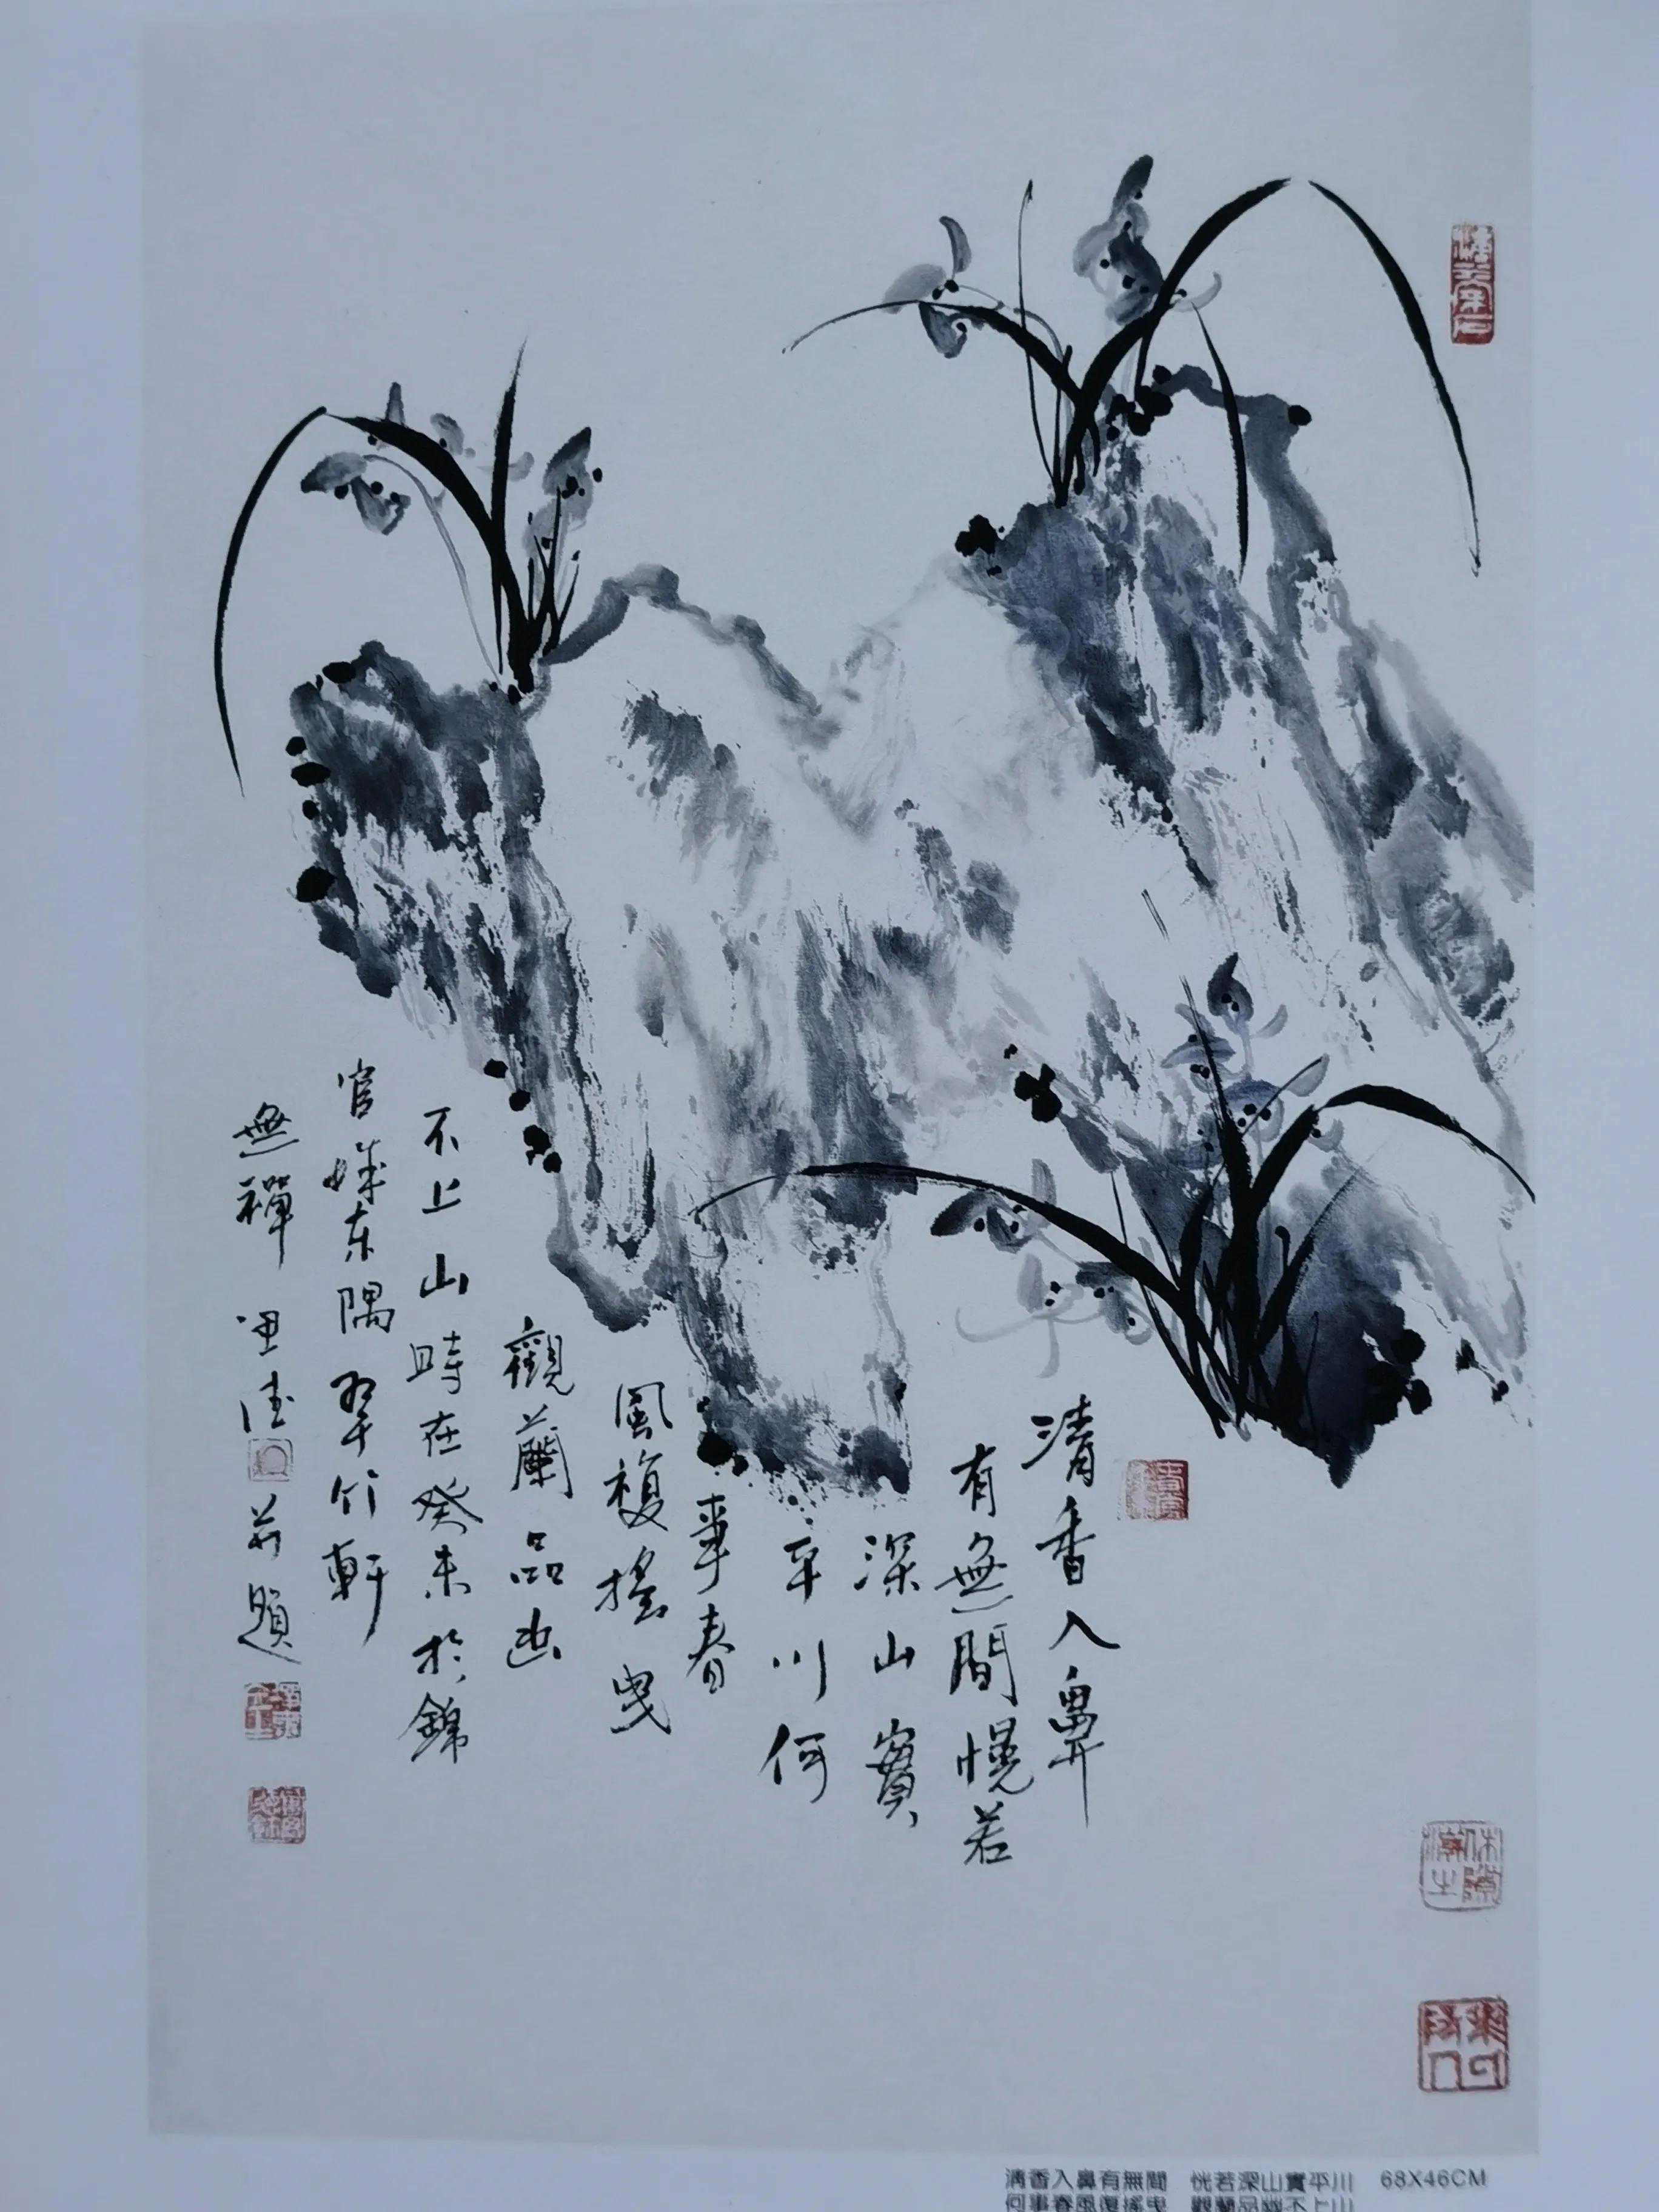 清香入鼻
有無間幌若
深山實
平川何
事春
風複搖曳
觀蘭品幽
不上山時在癸未於錦
官城东隅翠竹軒
無禪
并題
清香入鼻有無間 恍若深山實平川 68X46CM
何事春風復搖曳 觀蘭品幽不上山